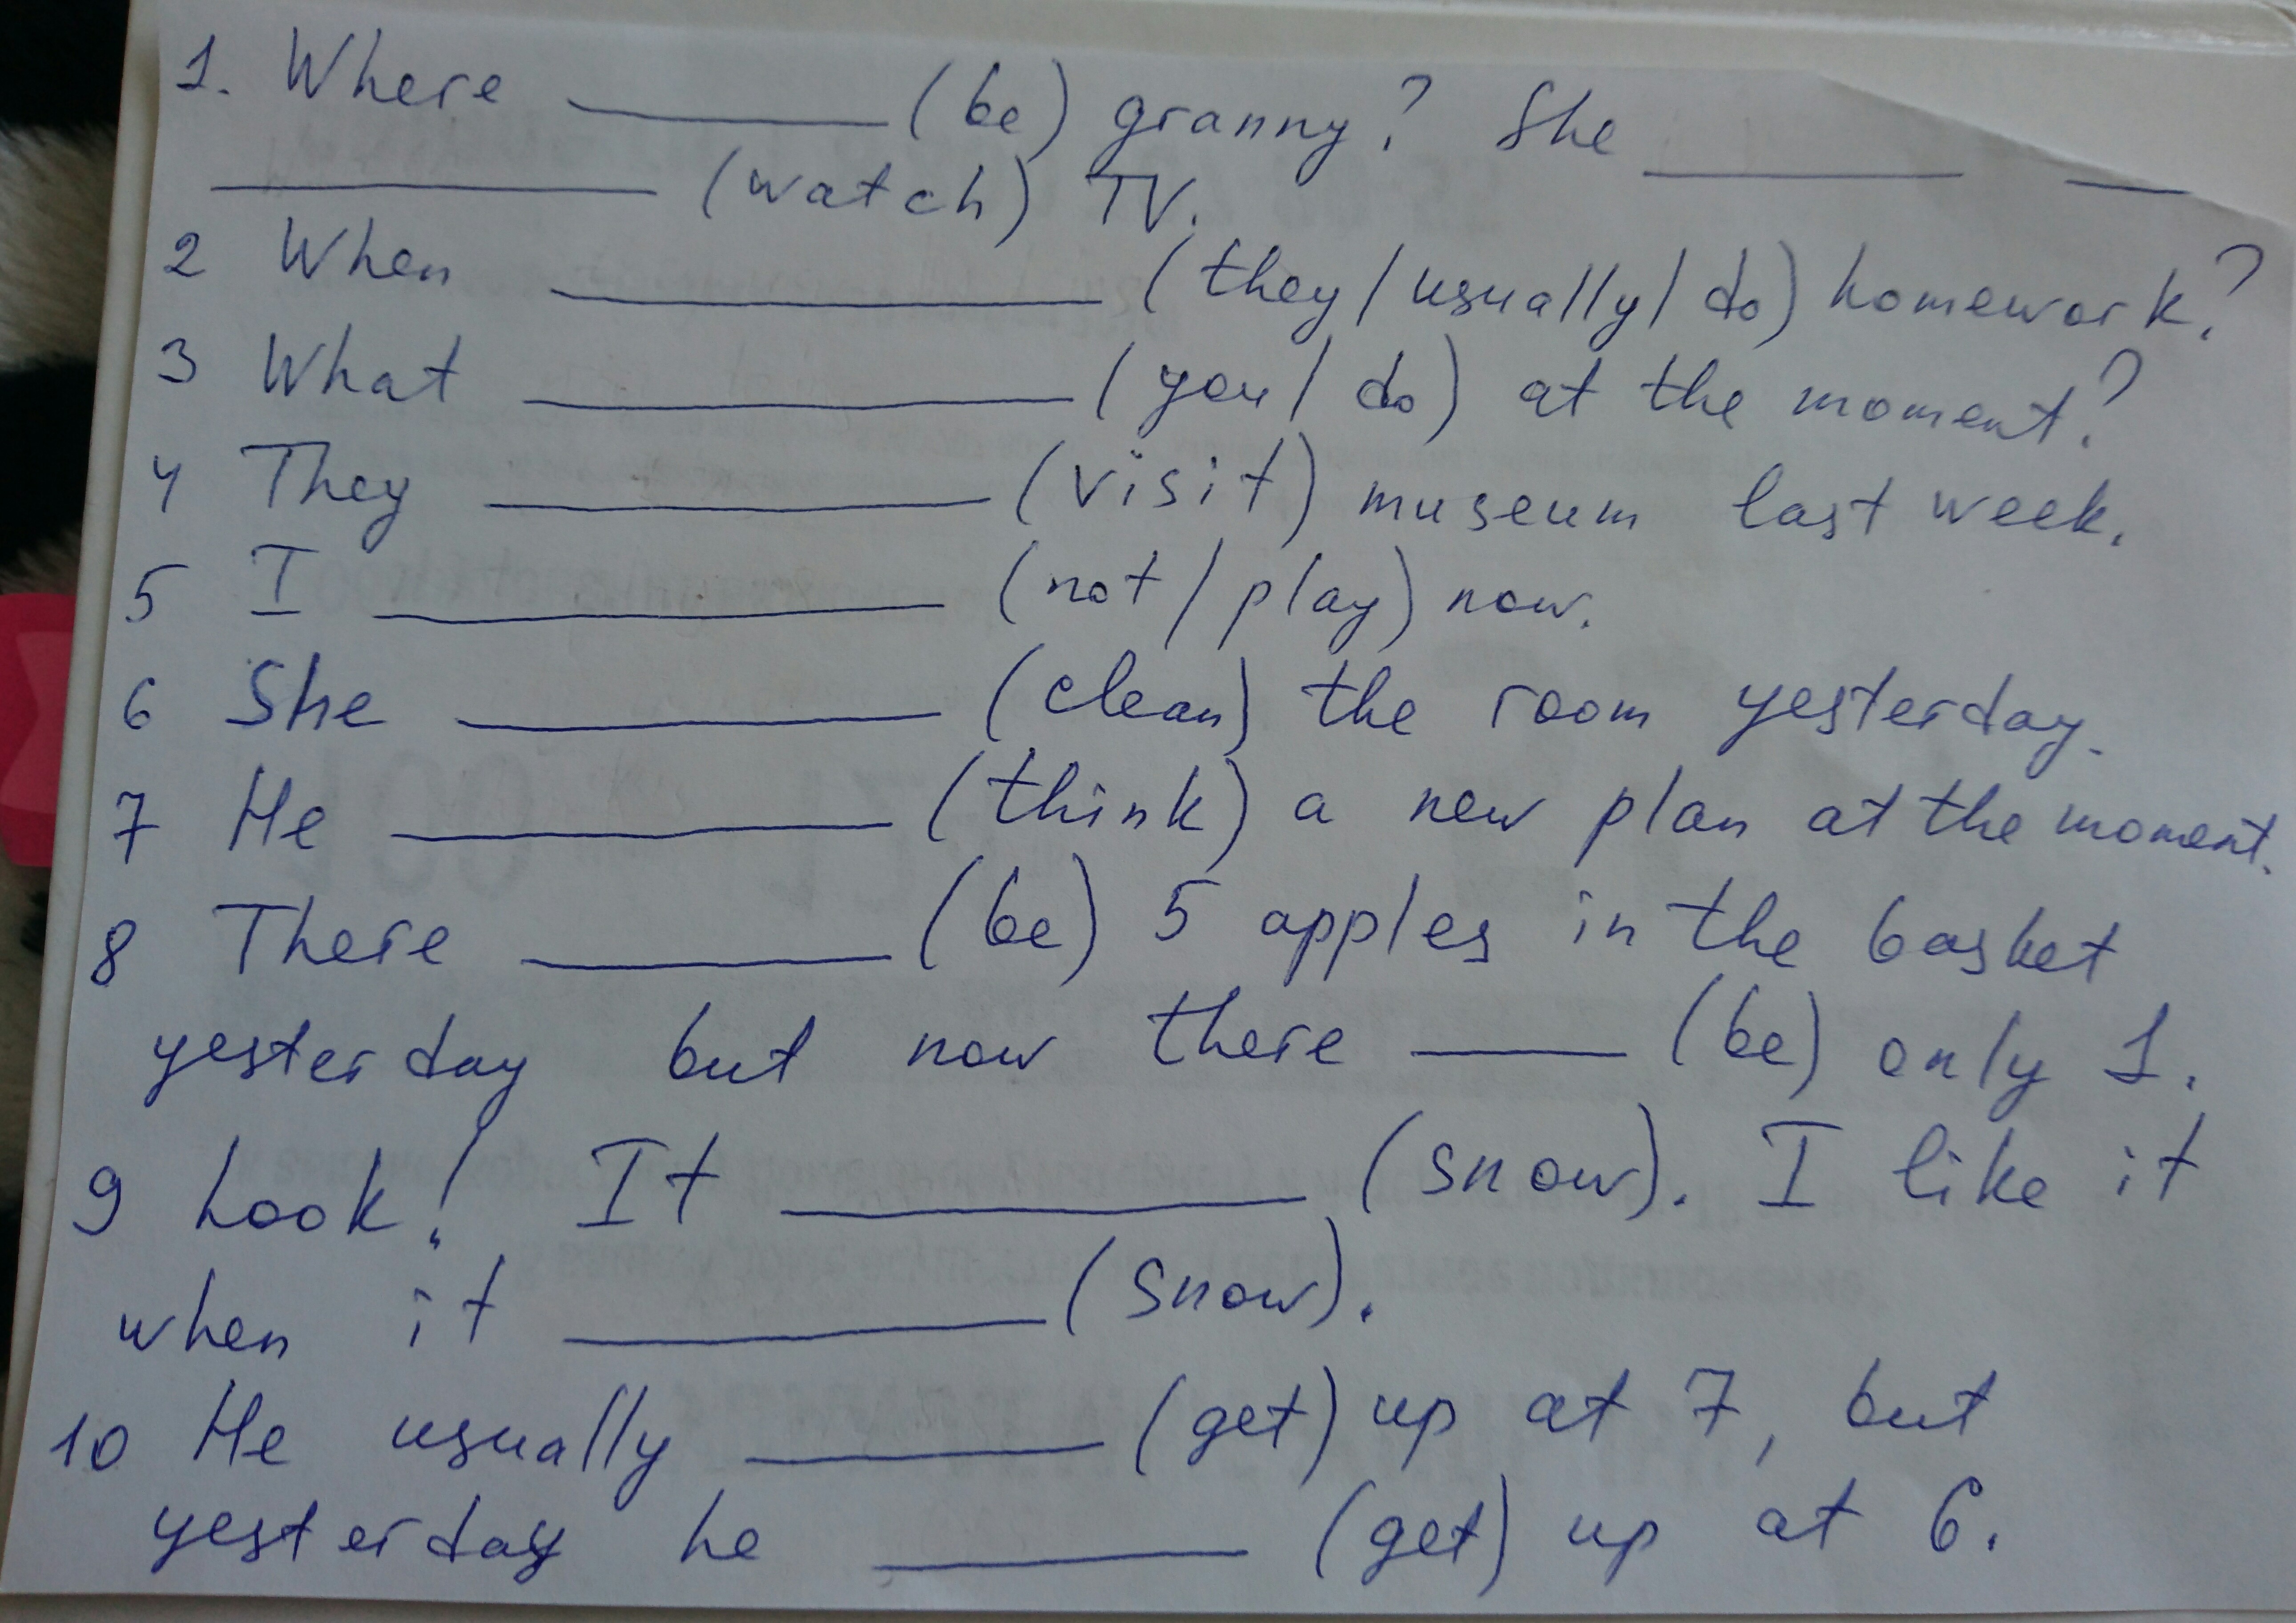 1. Where ________ (be) granny? She ________ ___
________ (watch) TV.
2 When ________ (they/usually/do) homework?
3 What ________ (you/do) at the moment?
4 They ________ (visit) museum last week.
5 I ________ (not/play) now.
6 She ________ (clean) the room yesterday.
7 He ________ (think) a new plan at the moment.
8 There ________ (be) 5 apples in the basket
yesterday but now there ____ (be) only 1.
9 Look! It ________ (snow). I like it
when it ________ (snow).
10 He usually ________ (get) up at 7, but
yesterday he ________ (get) up at 6.